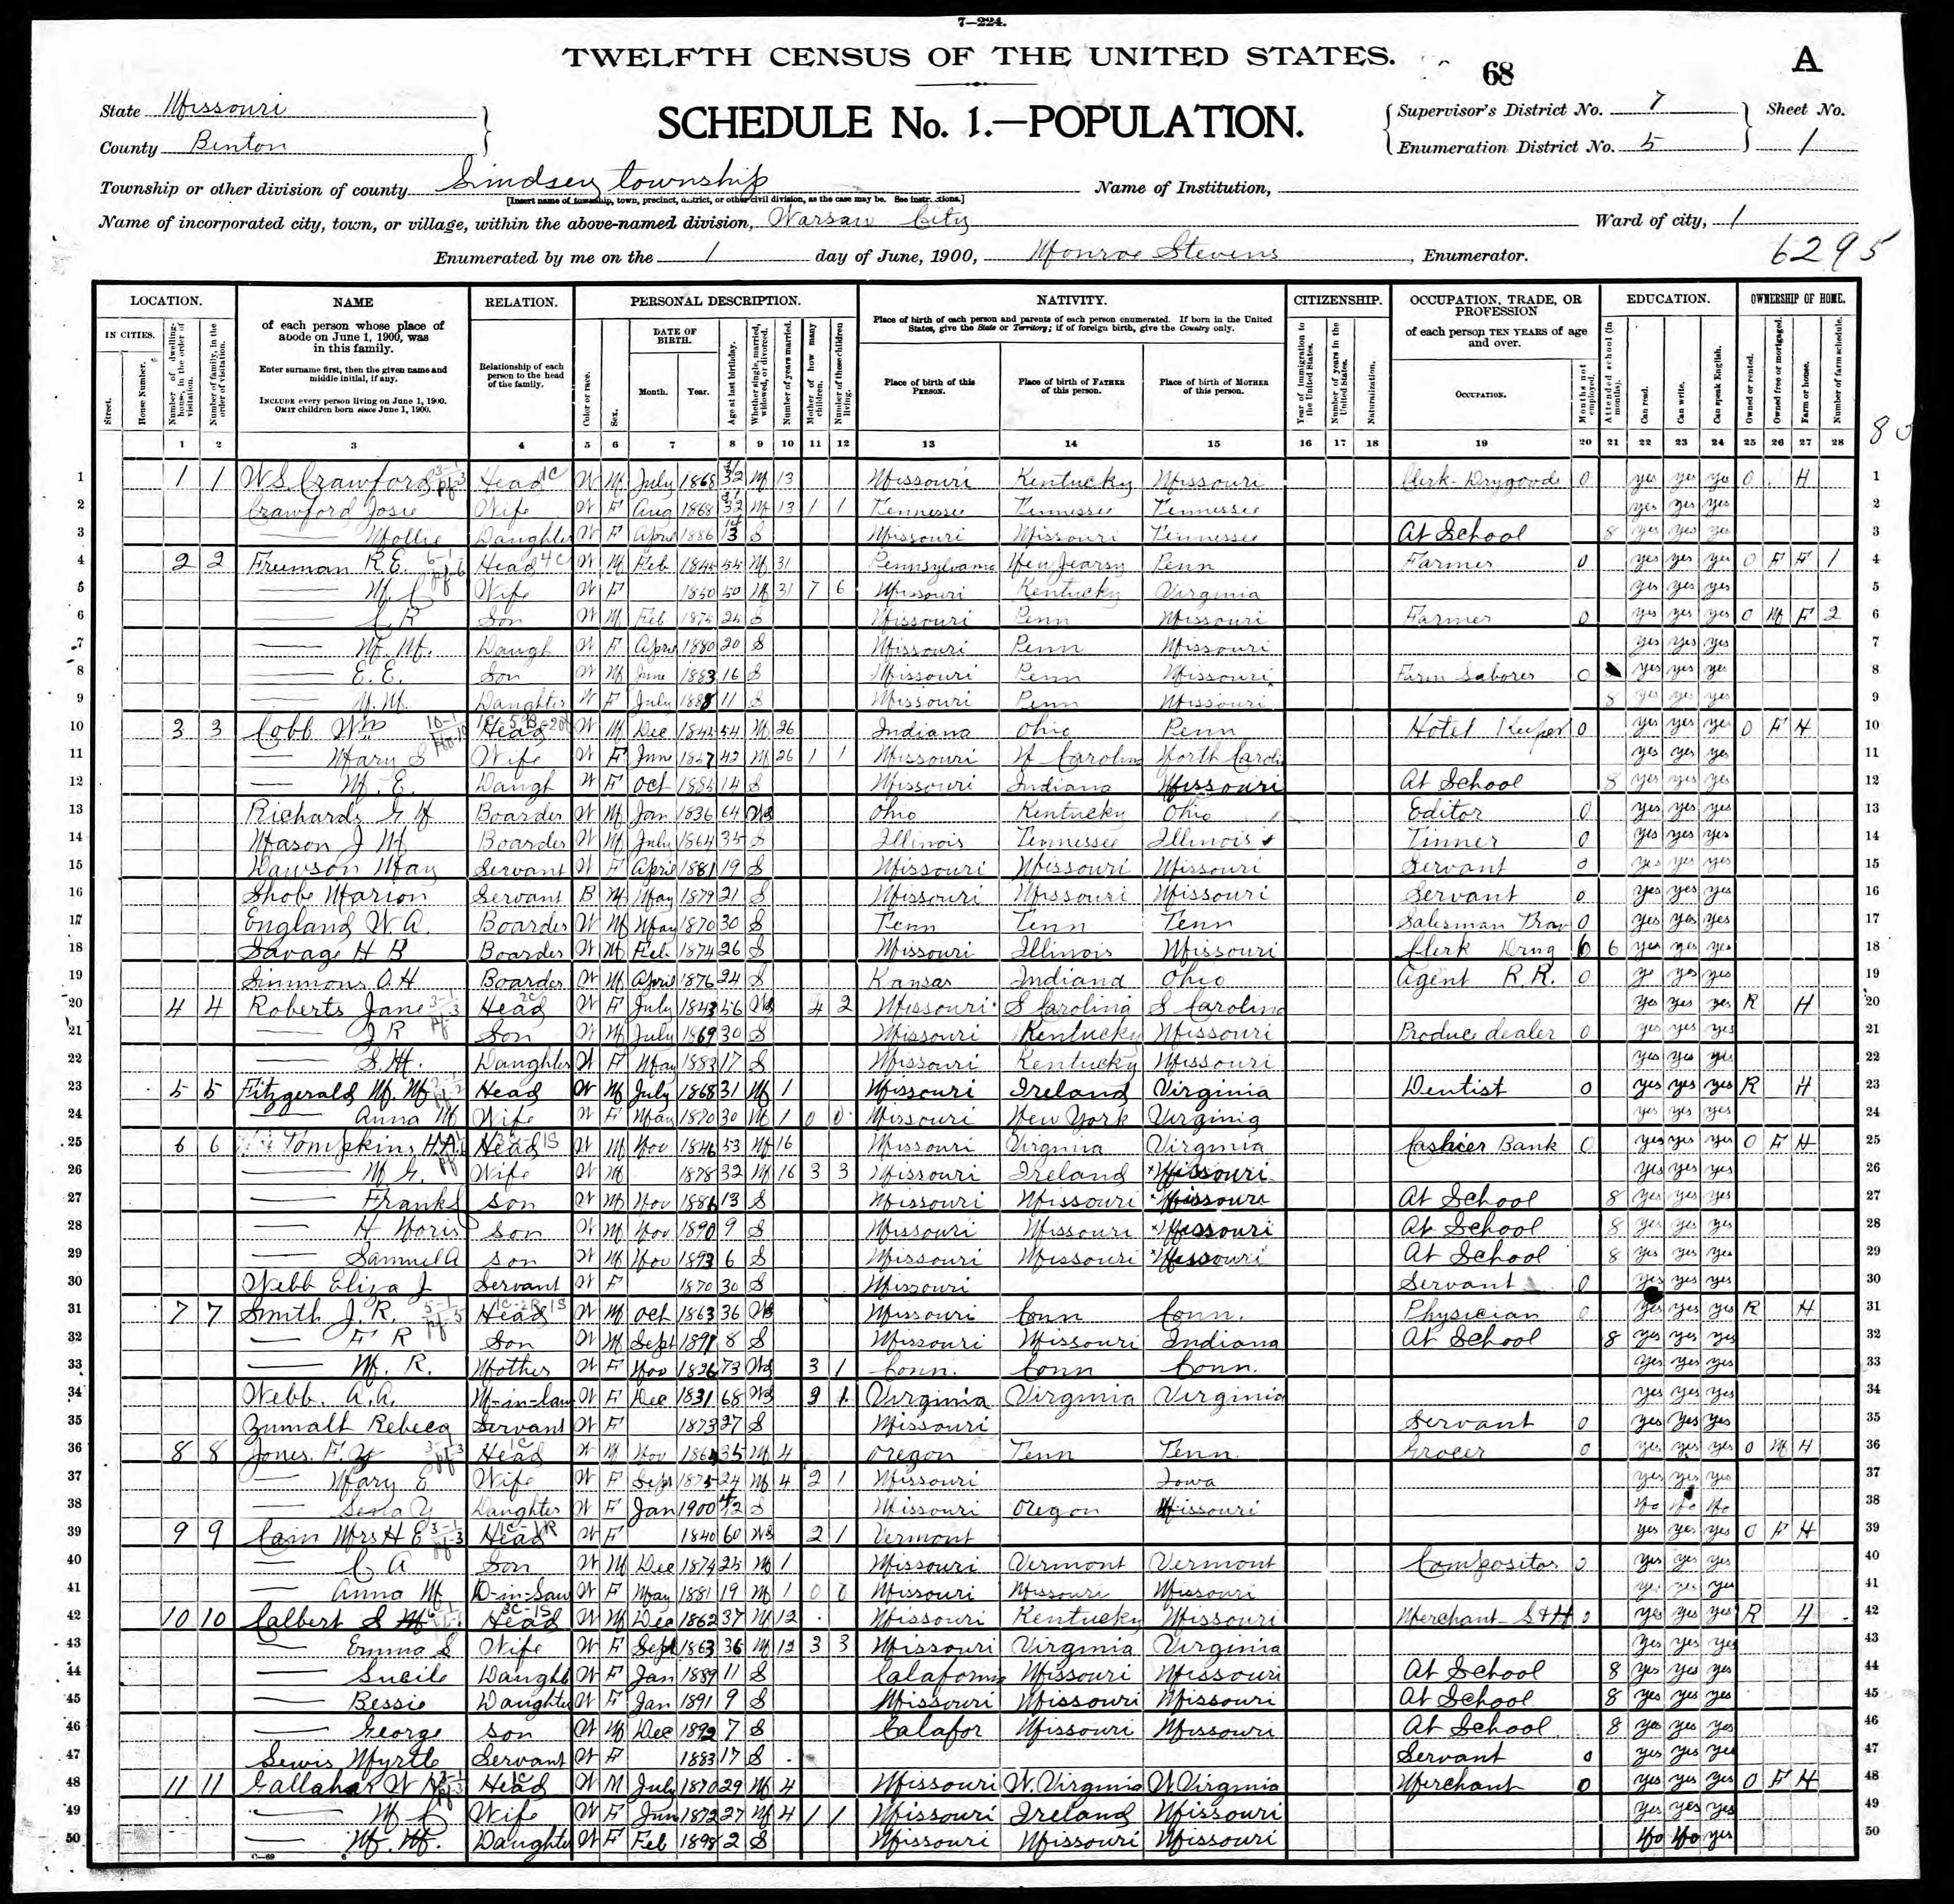 7—224.
TWELFTH CENSUS OF THE UNITED STATES.
68
A
State Missouri
County Benton
SCHEDULE No. 1.—POPULATION.
Supervisor's District No. 7
Enumeration District No. 5
Sheet No.
1
Township or other division of county Lindsey township
[Insert name of township, town, precinct, district, or other civil division, as the case may be. See instructions.]
Name of Institution,
Name of incorporated city, town, or village, within the above-named division, Warsaw City
Ward of city, 1
Enumerated by me on the 1 day of June, 1900, Monroe Stevens, Enumerator.
6295
LOCATION. NAME RELATION. PERSONAL DESCRIPTION. NATIVITY. CITIZENSHIP. OCCUPATION, TRADE, OR PROFESSION EDUCATION. OWNERSHIP OF HOME.
IN CITIES.
Street.
House Number.
Number of dwelling-house, in the order of visitation.
Number of family, in the order of visitation.
of each person whose place of abode on June 1, 1900, was in this family.
Enter surname first, then the given name and middle initial, if any.
INCLUDE every person living on June 1, 1900.
OMIT children born since June 1, 1900.
Relationship of each person to the head of the family.
Color or race.
Sex.
DATE OF BIRTH.
Month. Year.
Age at last birthday.
Whether single, married, widowed, or divorced.
Number of years married.
Mother of how many children.
Number of these children living.
Place of birth of each person and parents of each person enumerated. If born in the United States, give the State or Territory; if of foreign birth, give the Country only.
Place of birth of this PERSON.
Place of birth of FATHER of this person.
Place of birth of MOTHER of this person.
Year of immigration to the United States.
Number of years in the United States.
Naturalization.
of each person TEN YEARS of age and over.
OCCUPATION.
Months not employed.
Attended school (in months).
Can read.
Can write.
Can speak English.
Owned or rented.
Owned free or mortgaged.
Farm or house.
Number of farm schedule.
1 2 3 4 5 6 7 8 9 10 11 12 13 14 15 16 17 18 19 20 21 22 23 24 25 26 27 28
1 1 1 W S Crawford Head W M July 1868 M 13 Missouri Kentucky Missouri Clerk-Drygoods 0 yes yes yes O H 1
2 Crawford Josie Wife W F Aug 1868 M 13 1 1 Tennessee Tennessee Tennessee yes yes yes 2
3 — Mollie Daughter W F April 1886 S Missouri Missouri Tennessee At School 8 yes yes yes 3
4 2 2 Freeman R.E. Head W M Feb 1845 55 M 31 Pennsylvania New Jearsy Penn Farmer 0 yes yes yes O F F 1 4
5 — M. C Wife W F 1850 50 M 31 7 6 Missouri Kentucky Virginia yes yes yes 5
6 — C R Son W M Feb 1875 25 S Missouri Penn Missouri Farmer 0 yes yes yes O M F 2 6
7 — M. M. Daugh W F April 1880 20 S Missouri Penn Missouri yes yes yes 7
8 — E. E. Son W M June 1883 16 S Missouri Penn Missouri Farm Laborer 0 yes yes yes 8
9 — M. M. Daughter W F July 1888 11 S Missouri Penn Missouri 8 yes yes yes 9
10 3 3 Cobb Wm Head W M Dec 1845 54 M 26 Indiana Ohio Penn Hotel Keeper 0 yes yes yes O F H 10
11 — Mary S Wife W F June 1857 42 M 26 1 1 Missouri N Carolina North Caroli yes yes yes 11
12 — M. E. Daugt W F Oct 1885 14 S Missouri Indiana Missouri At School 8 yes yes yes 12
13 Richards G M Boarder W M Jan 1836 64 Wd Ohio Kentucky Ohio Editor 0 yes yes yes 13
14 Mason J M Boarder W M July 1864 35 S Illinois Tennessee Illinois Tinner 0 yes yes yes 14
15 Dawson May Servant W F April 1881 19 S Missouri Missouri Missouri Servant 0 yes yes yes 15
16 Shobe Marion Servant B M May 1879 21 S Missouri Missouri Missouri Servant 0 yes yes yes 16
17 England W. A. Boarder W M May 1870 30 S Tenn Tenn Tenn Salesman Trav 0 yes yes yes 17
18 Savage H B Boarder W M Feb 1874 26 S Missouri Illinois Missouri Clerk Drug 6 6 yes yes yes 18
19 Simmons O.H Boarder W M April 1876 24 S Kansas Indiana Ohio Agent R R. 0 ye yes yes 19
20 4 4 Roberts Jane Head W F July 1843 56 Wd 4 2 Missouri S Carolina S Carolina yes yes yes R H 20
21 — J R Son W M July 1869 30 S Missouri Kentucky Missouri Produce dealer 0 yes yes yes 21
22 — S. M. Daughter W F May 1883 17 S Missouri Kentucky Missouri yes yes yes 22
23 5 5 Fitzgerald M. M Head W M July 1868 31 M 1 Missouri Ireland Virginia Dentist 0 yes yes yes R H 23
24 — Anna M Wife W F May 1870 30 M 1 0 0 Missouri New York Virginia yes yes yes 24
25 6 6 Tompkins H.A. Head W M Nov 1846 53 M 16 Missouri Virginia Virginia Cashier Bank 0 yes yes yes O F H 25
26 — M G. Wife W M 1878 32 M 16 3 3 Missouri Ireland Missouri yes yes yes 26
27 — Frank S Son W M Nov 1886 13 S Missouri Missouri Missouri At School 8 yes yes yes 27
28 — H Noris Son W M Nov 1890 9 S Missouri Missouri Missouri At School 8 yes yes yes 28
29 — Samuel A Son W M Nov 1893 6 S Missouri Missouri Missouri At School 8 yes yes yes 29
30 Webb Eliza J Servant W F 1870 30 S Missouri Servant 0 yes yes yes 30
31 7 7 Smith J. R. Head W M Oct 1863 36 Wd Missouri Conn Conn. Physician 0 yes yes yes R H 31
32 — F R Son W M Sept 1891 8 S Missouri Missouri Indiana At School 8 yes yes yes 32
33 — M. R. Mother W F Nov 1826 73 Wd 3 1 Conn. Conn Conn. yes yes yes 33
34 Webb. A.A. M-in-law W F Dec 1831 68 Wd 3 1 Virginia Virginia Virginia yes yes yes 34
35 Zumalt Rebeca Servant W F 1873 27 S Missouri Servant 0 yes yes yes 35
36 8 8 Jones. F. Y Head W M Nov 1864 35 M 4 Oregon Tenn Tenn. Grocer 0 yes yes yes O M H 36
37 — Mary E Wife W F Sept 1875 24 M 4 2 1 Missouri Iowa yes yes yes 37
38 — Sena Y Daughter W F Jan 1900 S Missouri Oregon Missouri No No No 38
39 9 9 Cain Mrs H E Head W F 1840 60 Wd 2 1 Vermont yes yes yes O F H 39
40 — C A Son W M Dec 1874 25 M 1 Missouri Vermont Vermont Compositor 0 yes yes yes 40
41 — Anna M D-in-Law W F May 1881 19 M 1 0 0 Missouri Missouri Missouri yes yes yes 41
42 10 10 Calbert S M Head W M Dec 1862 37 M 12 Missouri Kentucky Missouri Merchant-S&H 0 yes yes yes R H 42
43 — Emma S Wife W F Sept 1863 36 M 12 3 3 Missouri Virginia Virginia yes yes yes 43
44 — Lucile Daught W F Jan 1889 11 S Calafornia Missouri Missouri At School 8 yes yes yes 44
45 — Bessie Daughter W F Jan 1891 9 S Missouri Missouri Missouri At School 8 yes yes yes 45
46 — George Son W M Dec 1892 7 S Calafor Missouri Missouri At School 8 yes yes yes 46
47 Lewis Myrtle Servant W F 1883 17 S Servant 0 yes yes yes 47
48 11 11 Gallahar W Head W M July 1870 29 M 4 Missouri W. Virginia W Virginia Merchant 0 yes yes yes O F H 48
49 — M C Wife W F Jun 1872 27 M 4 1 1 Missouri Ireland Missouri yes yes yes 49
50 — M. M. Daughter W F Feb 1898 2 S Missouri Missouri Missouri No No yes 50